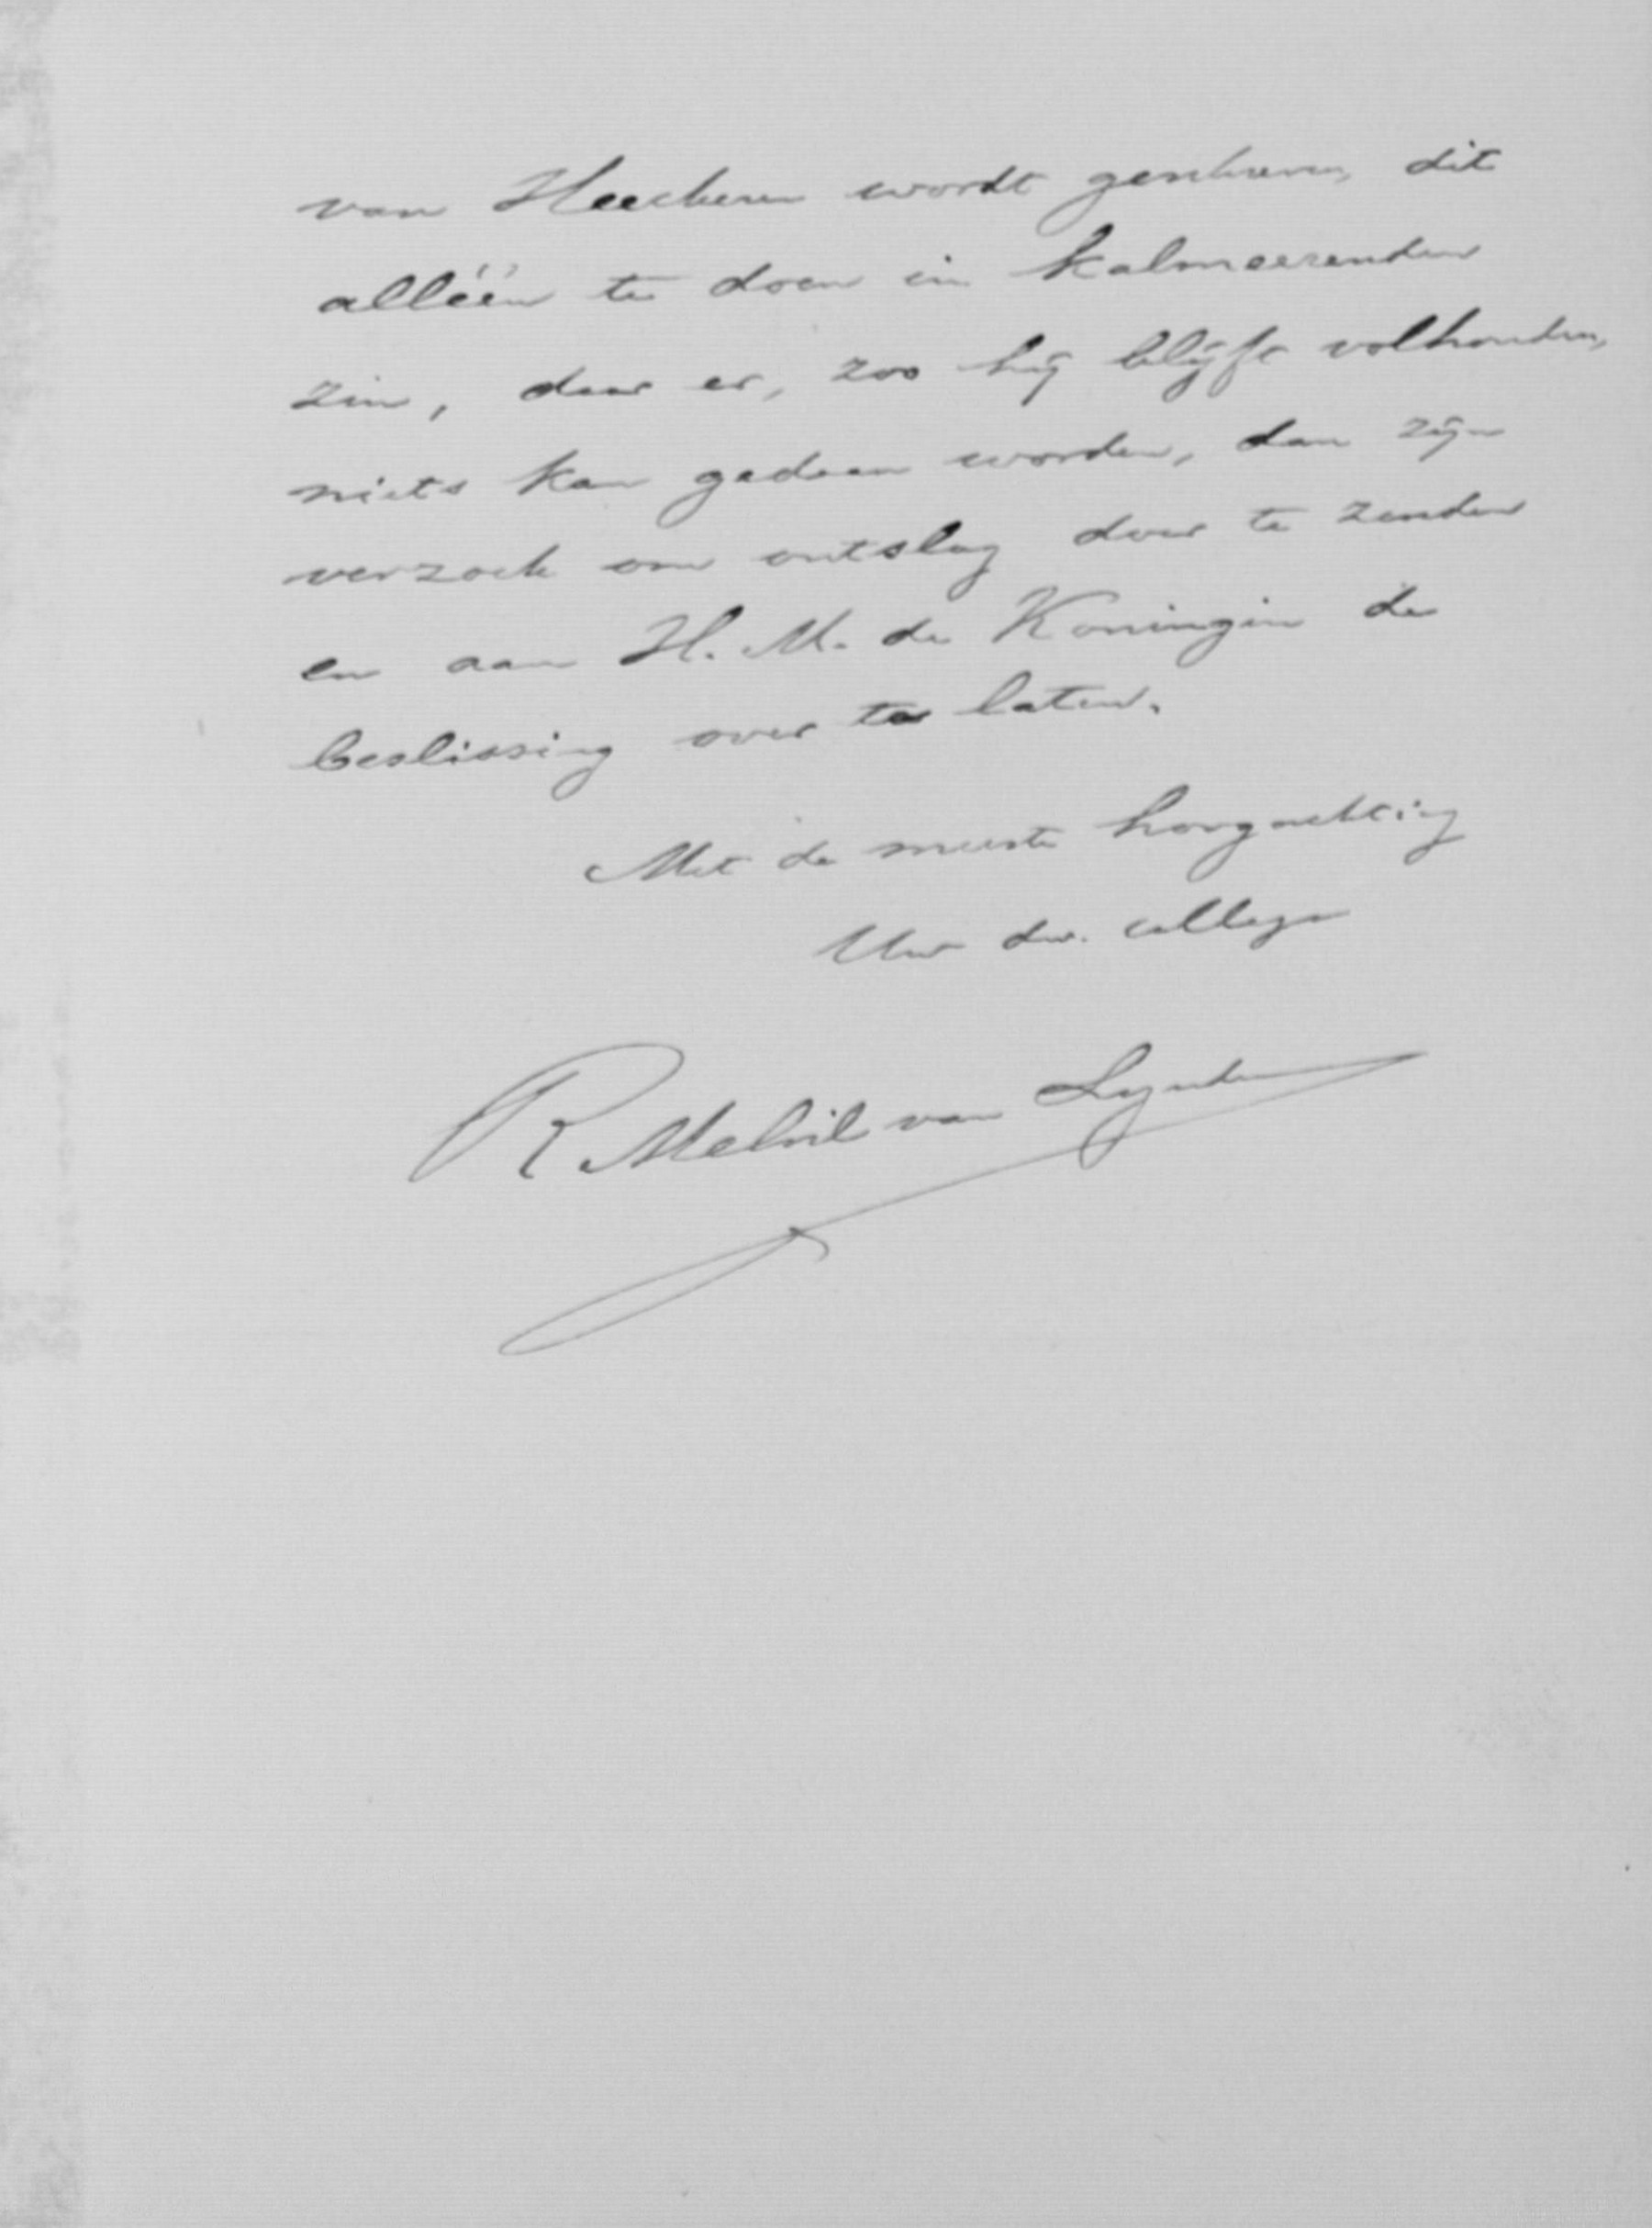 van Heeckeren wordt geschreven, dit
alléén te doen in kalmeerenden
zin, daar er, zoo hij blijft volhouden,
niets kan gedaan worden, dan zijn
verzoek om ontslag door te zenden
en aan H. M. de Koningin de
beslissing over te laten.
Met de meeste hoogachting
Uw dw. collega
R Melvil van Lynden